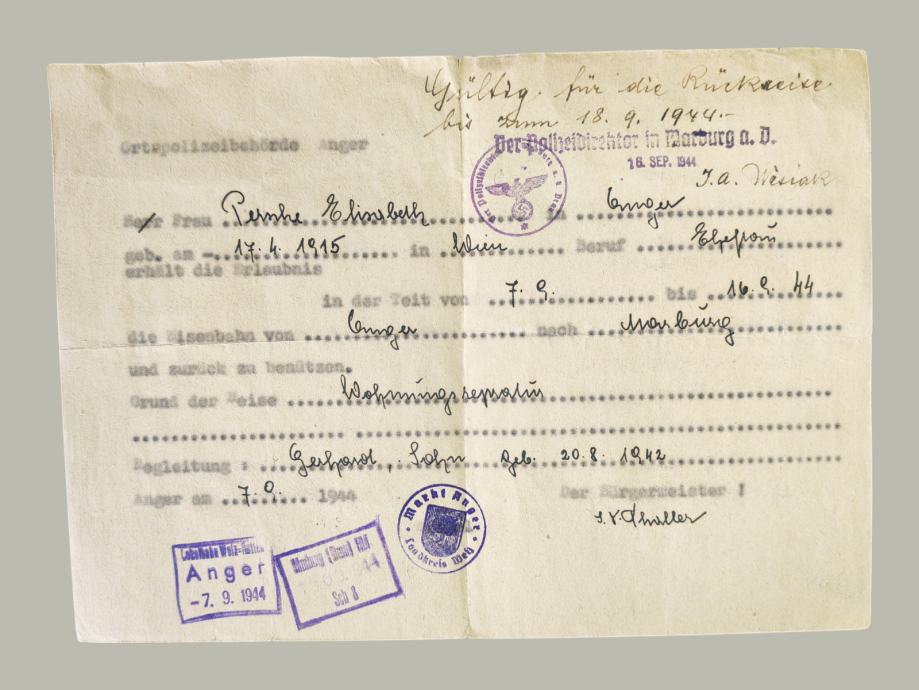 Gültig für die Rückreise
bis zum 18. 9. 1944.-
Ortspolizeibehörde Anger
Der Polizeidirektor in Marburg a. D.
16. SEP. 1944
I.A. Wesiak
Herr Frau Elisabeth in Anger
geb. am 17. 4. 1915 in Wien Beruf Ehefrau
erhält die Erlaubnis
in der Teit von 7. 9. bis 16. 9. 44
die Eisenbahn von Anger nach Marburg
und zurück zu benützen.
Grund der Reise Wohnungsreparatur
Begleitung : Gerhard, Sohn geb. 20. 8. 1942
Anger am 7. 9. 1944 Der Bürgermeister !
Markt Anger
Landkreis Weiz
Anger
-7. 9. 1944
Marburg (Drau) Hbf
Sch 8